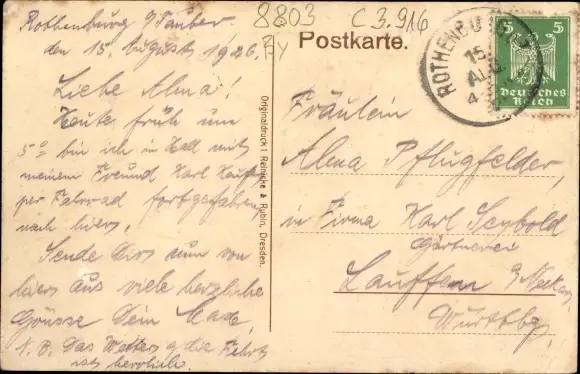 8803 C 3.916
Fy
Rothenburg o/Tauber
den 15. August 1926.
Liebe Alma!
Heute früh um
5° bin ich in Hall mit
meinem Freund Karl
per Fahrrad fortgefahren
nach hier.
Sende Dir nun von
hier aus viele herzliche
Grüsse Dein
N. B. Das Wetter z. die Fahrt
ist herrlich.
Originaldruck! Reinicke & Rubin, Dresden.
Postkarte.
ROTHENBU
15
AUG
4
5 5
Deutsches
Reich
Fräulein
Alma Pflugfelder,
in Firma Karl Seybold
Gärtnerei
Lauffen a/Neckar,
Württbg.